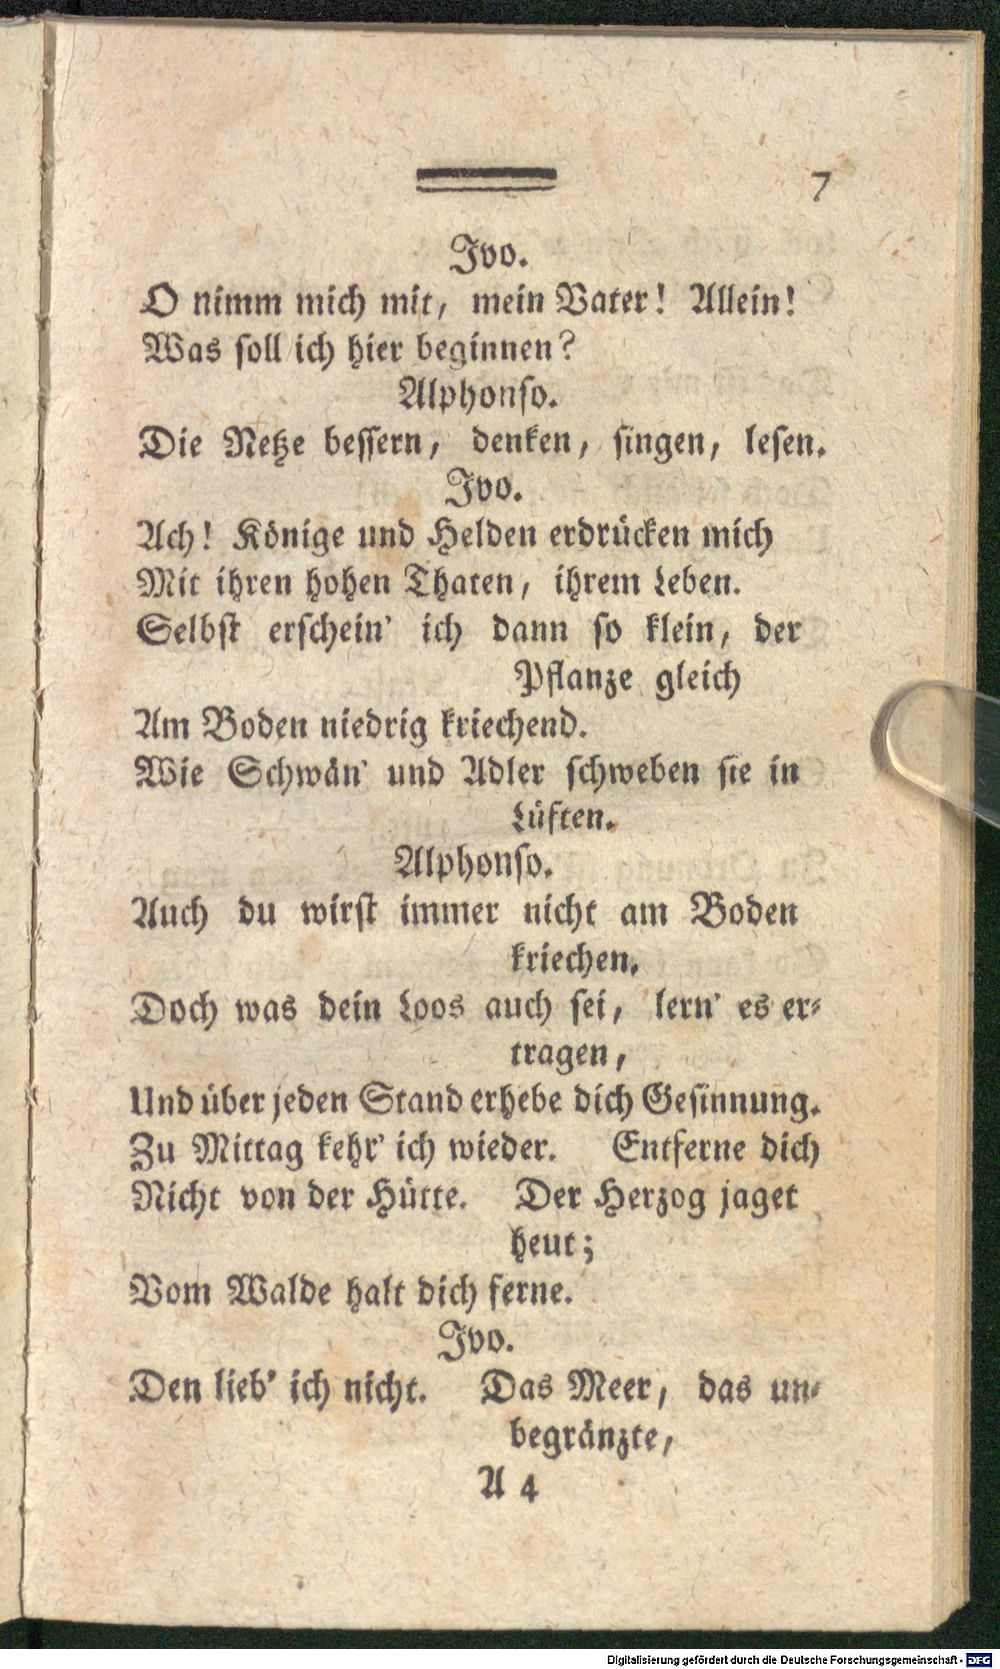 7
Ivo.
O nimm mich mit, mein Vater! Allein!
Was soll ich hier beginnen?
Alphonso.
Die Netze bessern, denken, singen, lesen.
Ivo.
Ach! Könige und Helden erdrücken mich
Mit ihren hohen Thaten, ihrem Leben.
Selbst erschein' ich dann so klein, der
Pflanze gleich
Am Boden niedrig kriechend.
Wie Schwän' und Adler schweben sie in
Lüften.
Alphonso.
Auch du wirst immer nicht am Boden
kriechen.
Doch was dein Loos auch sei, lern' es er-
tragen,
Und über jeden Stand erhebe dich Gesinnung.
Zu Mittag kehr' ich wieder. Entferne dich
Nicht von der Hütte. Der Herzog jaget
heut;
Vom Walde halt dich ferne.
Ivo.
Den lieb' ich nicht. Das Meer, das un-
begränzte,
A 4
Digitalisierung gefördert durch die Deutsche Forschungsgemeinschaft - DFG